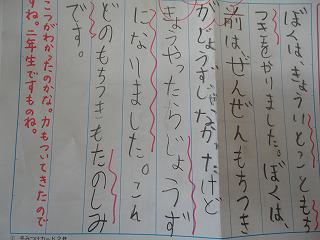 ぼくは、きょういとこともち
つきをやりました。ぼくは、
前は、ぜんぜんもちつき
がじょうずじなかたけど
きょうやったらじょうず
になりました。これ
どのもちつきもたのしみ
です。
こつがわかったのかな。力もついてきたので
すね。二年生ですものね。